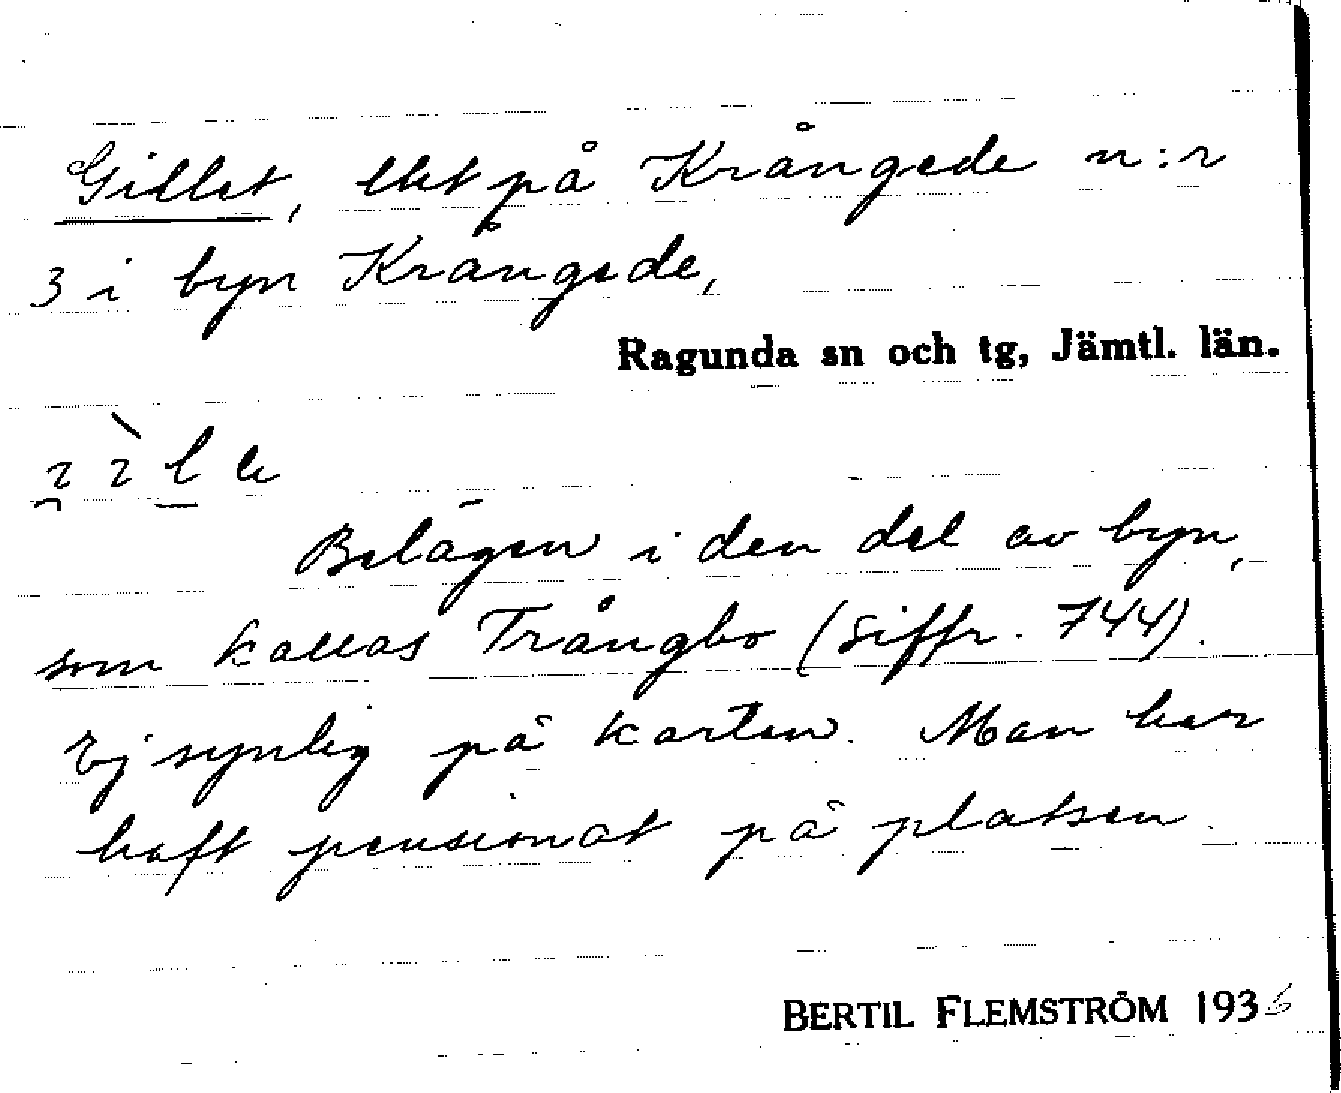 Gillet, lht på Krångede n:r
3 i byn Krångede,
Ragunda sn och tg, Jämtl. län.
Belägen i den del av byn,
som kallas Trångbo (siffr. 744).
Ej synlig på kartan. Man har
haft pensionat på platsen.
BERTIL FLEMSTRÖM 1936